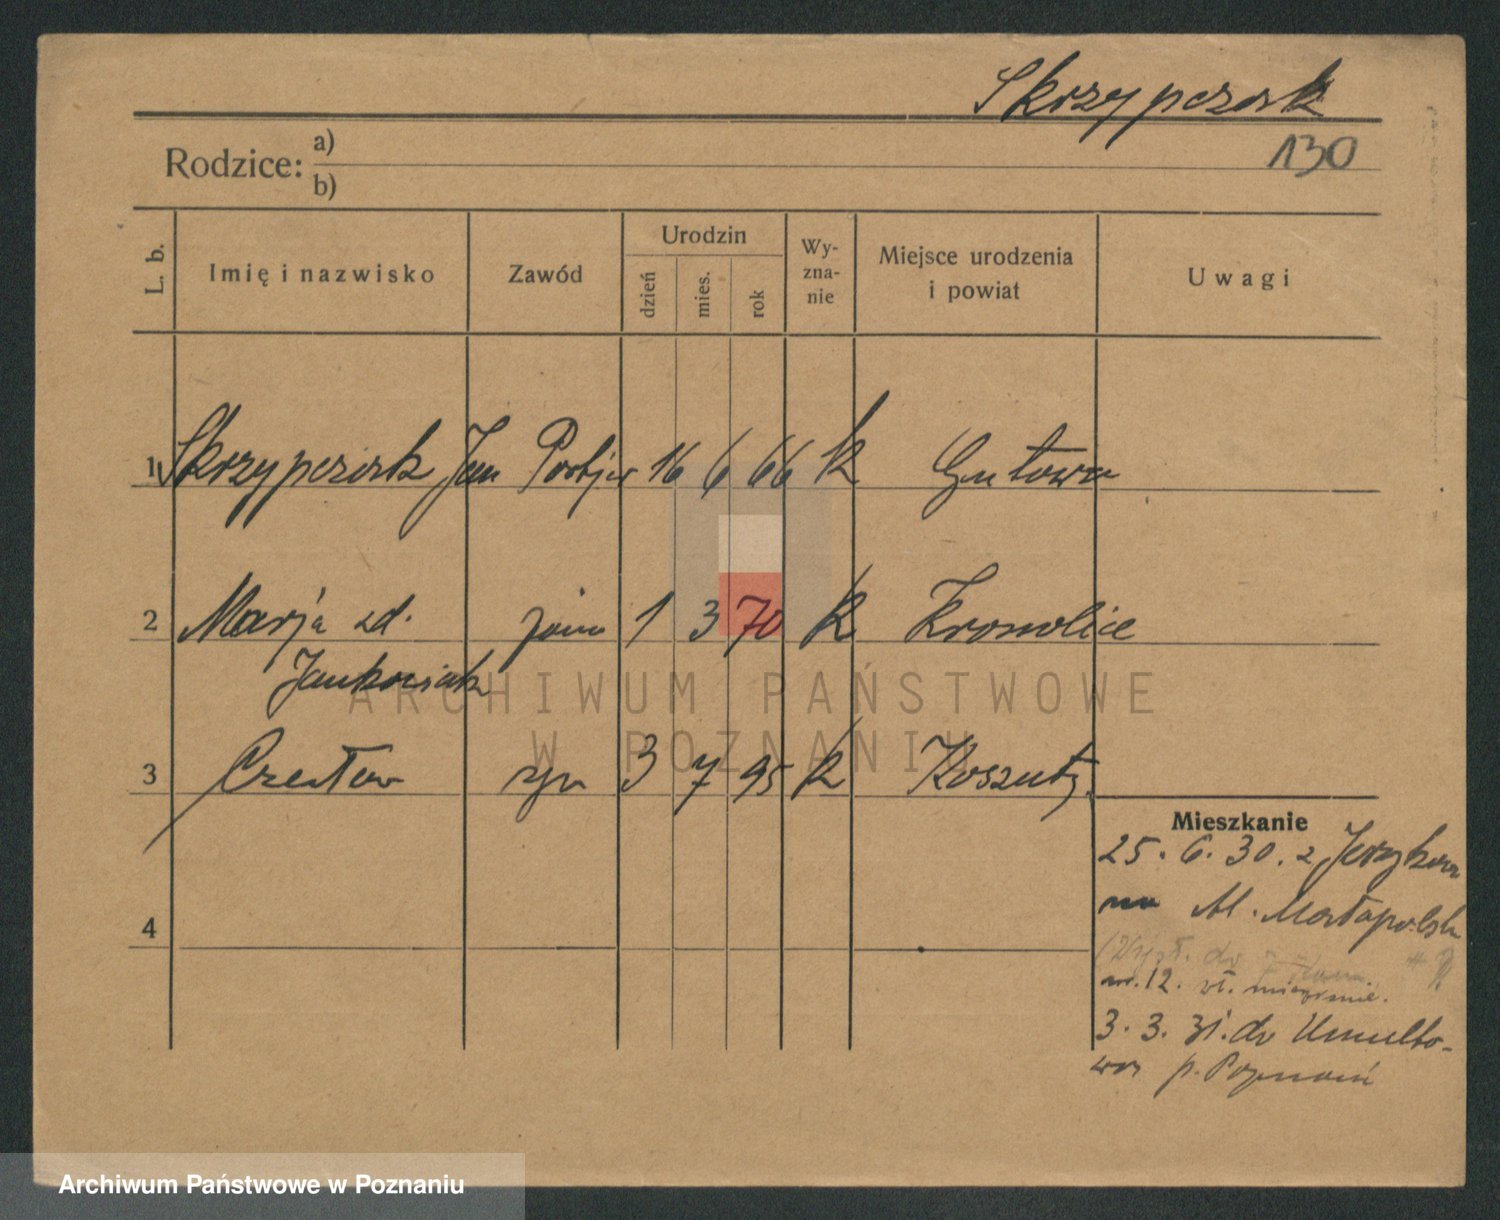 Skrzypczak
130
Rodzice: a)
b)
L. b. Imię i nazwisko Zawód Urodzin dzień mies. rok Wyznanie Miejsce urodzenia i powiat Uwagi
1 Skrzypczak Jan Portjer 16 6 66 k Gutowa
2 Marja zd. żona 1 3 70 k
Jankowiak
3 Czesław syn 3 7 95 k Koszuty
4
Mieszkanie
25. 6. 30. z Jerzykowa
na Al. Małopolska
nr. 12.
3. 3. 31. do Umulto-
wa p. Poznań
ARCHIWUM PAŃSTWOWE
W POZNANIU
Archiwum Państwowe w Poznaniu